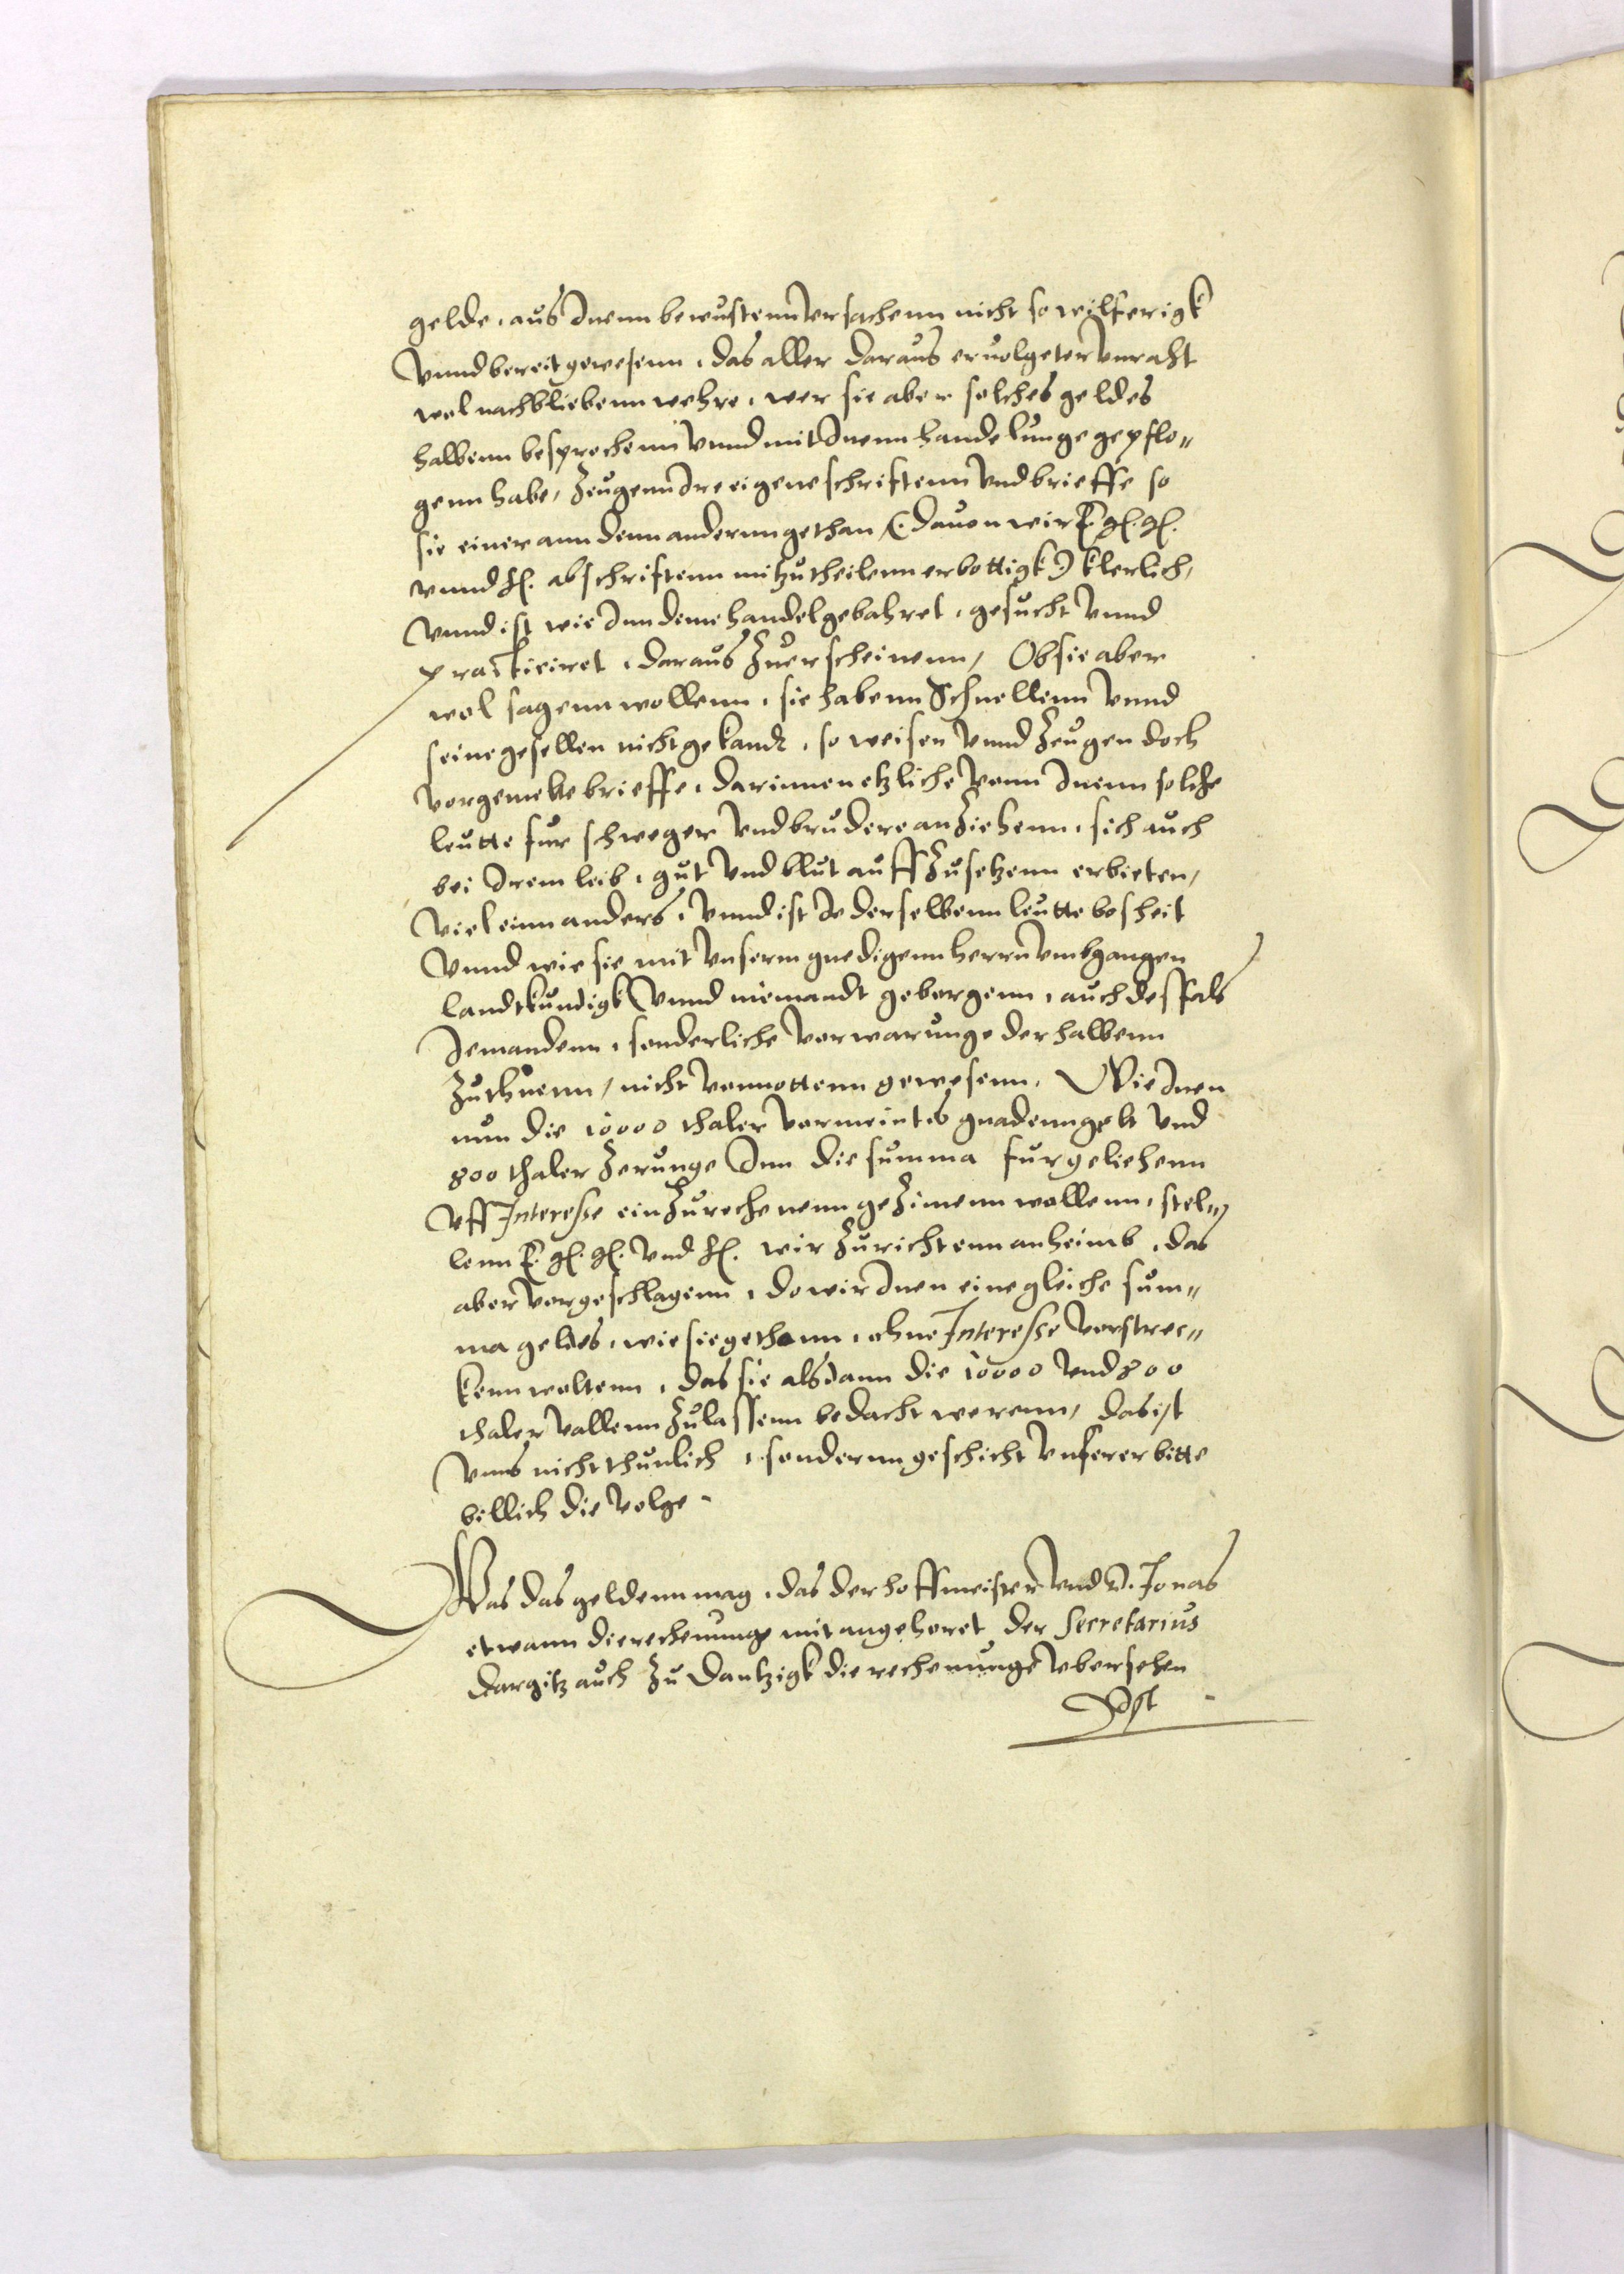 gelde, aus Inenn bewustenn vrsachenn nicht so wilferigk
vnnd bereit gewesenn, das aller daraus eruolgeter vnraht
wol nachbliebenn wehre, wer sie aber solches geldes
halbenn besprochenn vnnd mit Inenn handelunge gepflo„
genn habe, zeugenn Ire eigene schriftenn vnd brieffe so
sie einer ann denn andernn gethan /(: dauon wir E. G. G.
vnnd H. abschriftenn mitzutheilenn erbottigk :) klerlich,
vnnd ist wie Inn deme handel gebahret, gesucht vnnd
practiciret, daraus zuerscheinenn, Ob sie aber
wol sagenn wollenn, sie habenn Schnellenn vnnd
seine gesellen nicht gekandt, so weisen vnnd zeugen doch
vorgemelte brieffe, darinnen etzliche vonn Inenn solche
leutte fur schweger vnd brudere anziehenn, sich auch
bei Irem leib, gut vnd blut auffzusetzenn erbieten,
viel einn anders, vnnd ist Je derselbenn leutte bosheit
vnnd wie sie mit vnserm gnedigenn herrn vmbgangen
landtkundigk vnnd niemandt geborgenn, auch desfals
Jemandenn, sonderliche vorwarunge derhalbenn
zuthuenn, nicht vonnottenn gewesenn. Wie Inen
nun die 10000 thaler vermeintes gnadenngelt vnd
800 thaler zerunge Inn die summa furgeliehenn
vff Interesse einzurechenenn gezimenn wollenn, stel„
lenn E. G. G. vnd H. wir zurichtenn anheimb, das
aber vorgeschlagenn, do wir Inen eine gleiche sum„
ma geldes, wie sie gethann, ohne Interesse vorstrec„
kenn woltenn, das sie alsdann die 10000 vnd 800
thaler vallenn zulassenn bedacht werenn, das ist
vnns nicht thunlich, sondernn geschicht vnserer bitte
billich die volge.
Was das geldenn mag, das der hoffmeister vnd D. Jonas
etwann die rechenunge mit angehoret der Secretarius
Dargitz auch zu Dantzigk die rechenunge vbersehen